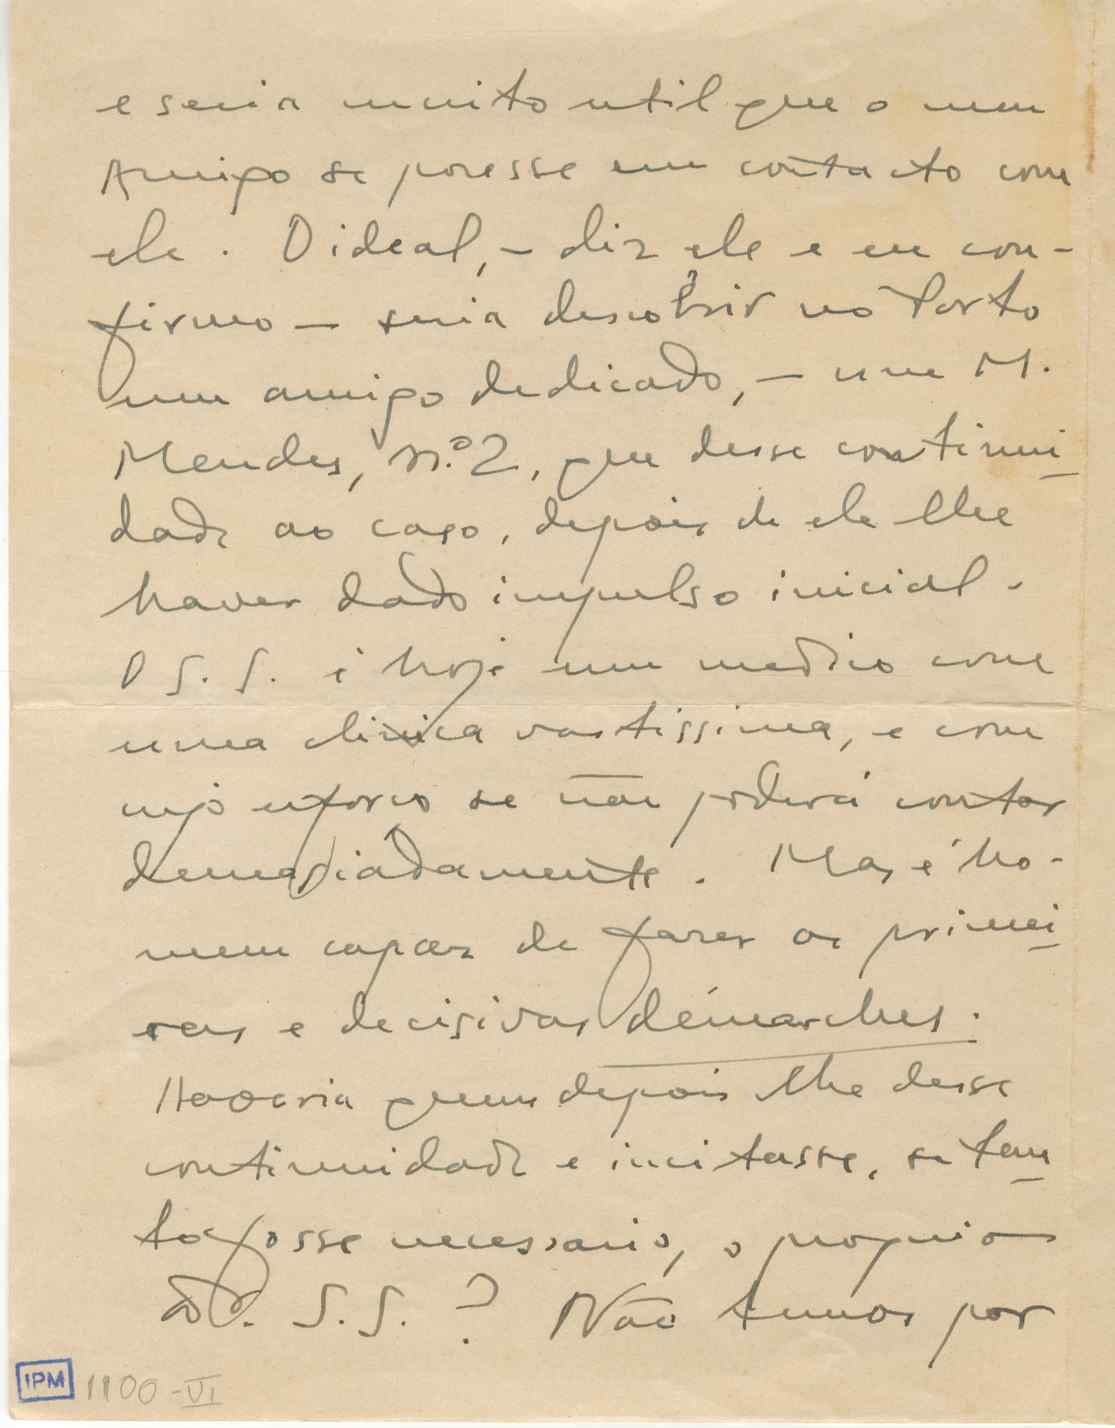 e seria muito util que o meu
Amigo se posesse em contacto com
ele. O ideal, – diz ele e eu con-
firmo – seria descobrir no Porto
um amigo dedicado, – um M.
Mendes, n.º 2, que desse continui-
dade ao caso, depois de ele lhe
haver dado impulso inicial.
O S. S. é hoje um medico com
uma clinica vastissima, e com
cujo esforço se não poderá contar
demasiadamente. Mas é ho-
mem capaz de fazer as primei-
ras e decisivas démarches.
Haveria quem depois lhe desse
continuidade e incitasse, se tan-
to fosse necessario, o proprio
dr. S. S.? Não temos por
IPM 1100-VI